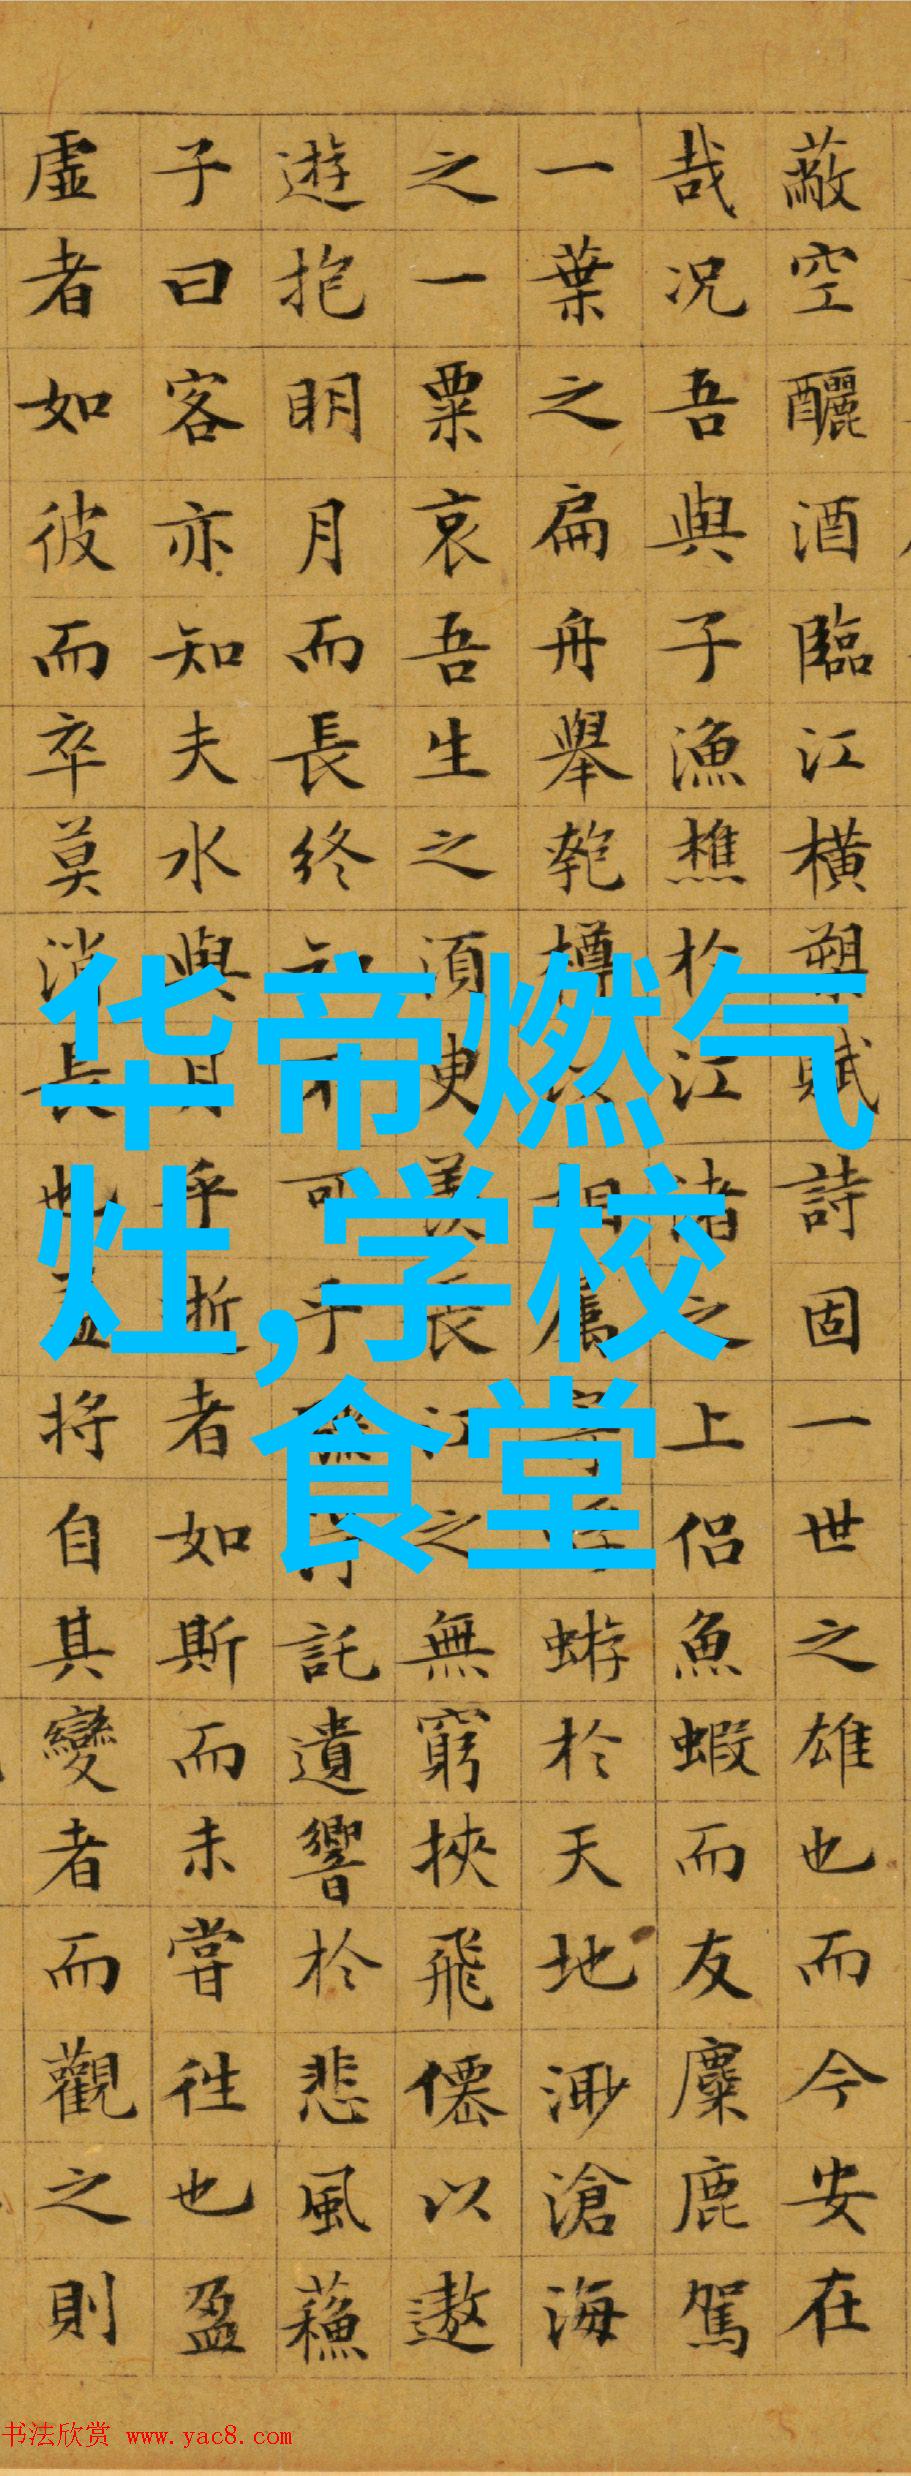 蔽空釃酒臨江橫槊賦詩固一世之雄也而今安在
哉况吾與子漁樵於江渚之上侣魚蝦而友麋鹿駕
一葉之扁舟舉匏樽相屬蝣於天地渺滄海
之一粟哀吾生之須臾羨長江之無窮挾飛僊以遨
遊抱明月而長終知不可乎得託遺響於悲風蘓
子曰客亦知夫水與月乎逝者如斯而未嘗往也盈
虛者如彼而卒莫消長也蓋將自其變者而觀之則
华帝燃气
灶,学校
食堂
书法欣赏 www.yac8.com